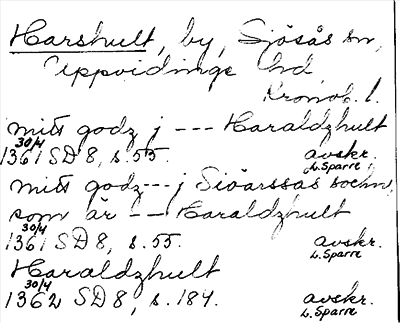 Harshult, by, Sjösås sn,
Uppvidinge hd,
Kronob. l.
mitt godz j --- Haraldzhult
30/4
1361 SD 8, s. 55. avskr.
L. Sparre
mitt godz --- j Siöarssas sochn,
som är -- Haraldzhult
30/4
1361 SD 8, s. 55. avskr.
L. Sparre
Haraldzhult
30/4
1362 SD 8, s. 184. avskr.
L. Sparre